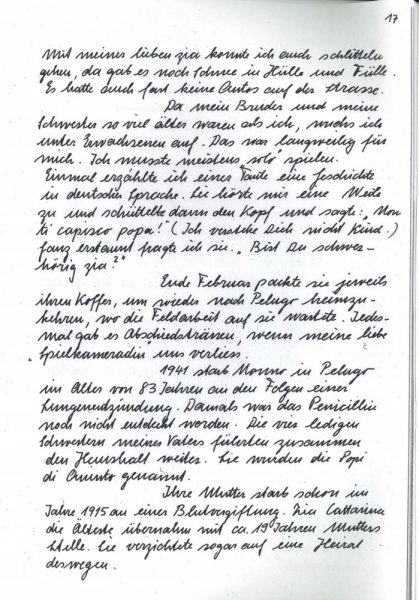 17
Mit meiner lieben zia konnte ich auch schlitteln
gehen, da gab es noch Schnee in Hülle und Fülle.
Es hatte auch fast keine Autos auf der Strasse.
Da mein Bruder und meine
Schwester so viel älter waren als ich, wuchs ich
unter Erwachsenen auf. Das war langweilig für
mich. Ich musste meistens "solo" spielen.
Einmal erzählte ich einer Tante eine Geschichte
in deutscher Sprache. Sie hörte mir eine Weile
zu und schüttelte dann den Kopf und sagte: "Non
ti capisco popa!" (Ich verstehe Dich nicht Kind.)
Ganz erstaunt fragte ich sie. "Bist Du schwer-
hörig zia?"
Ende Februar packte sie jeweils
ihren Koffer, um wieder nach Pelugo heimzu-
kehren, wo die Feldarbeit auf sie wartete. Jedes-
mal gab es Abschiedstränen, wenn meine liebe
Spielkameradin uns verliess.
1941 starb Nonno in Pelugo
im Alter von 83 Jahren an den Folgen einer
Lungenentzündung. Damals war das Penicillin
noch nicht entdeckt worden. Die vier ledigen
Schwestern meines Vaters führten zusammen
den Haushalt weiter. Sie wurden die Popi
di Amunto genannt.
Ihre Mutter starb schon im
Jahre 1915 an einer Blutvergiftung. Zia Cattarina
die Älteste übernahm mit ca. 19 Jahren Mutters
Stelle. Sie verzichtete sogar auf eine Heirat
deswegen.